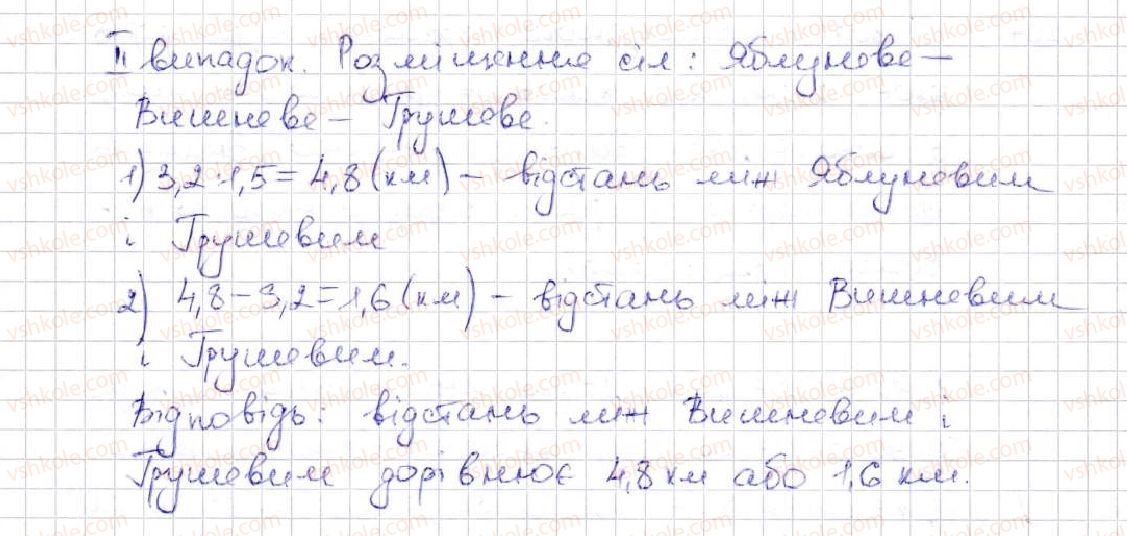 II випадок. Розміщення сіл: Яблунове –
Вишневе – Грушеве.
1) 3,2 · 1,5 = 4,8 (км) – відстань між Яблуновим
і Грушевим
2) 4,8 – 3,2 = 1,6 (км) – відстань між Вишневим
і Грушевим.
Відповідь: відстань між Вишневим і
Грушевим дорівнює 4,8 км або 1,6 км.